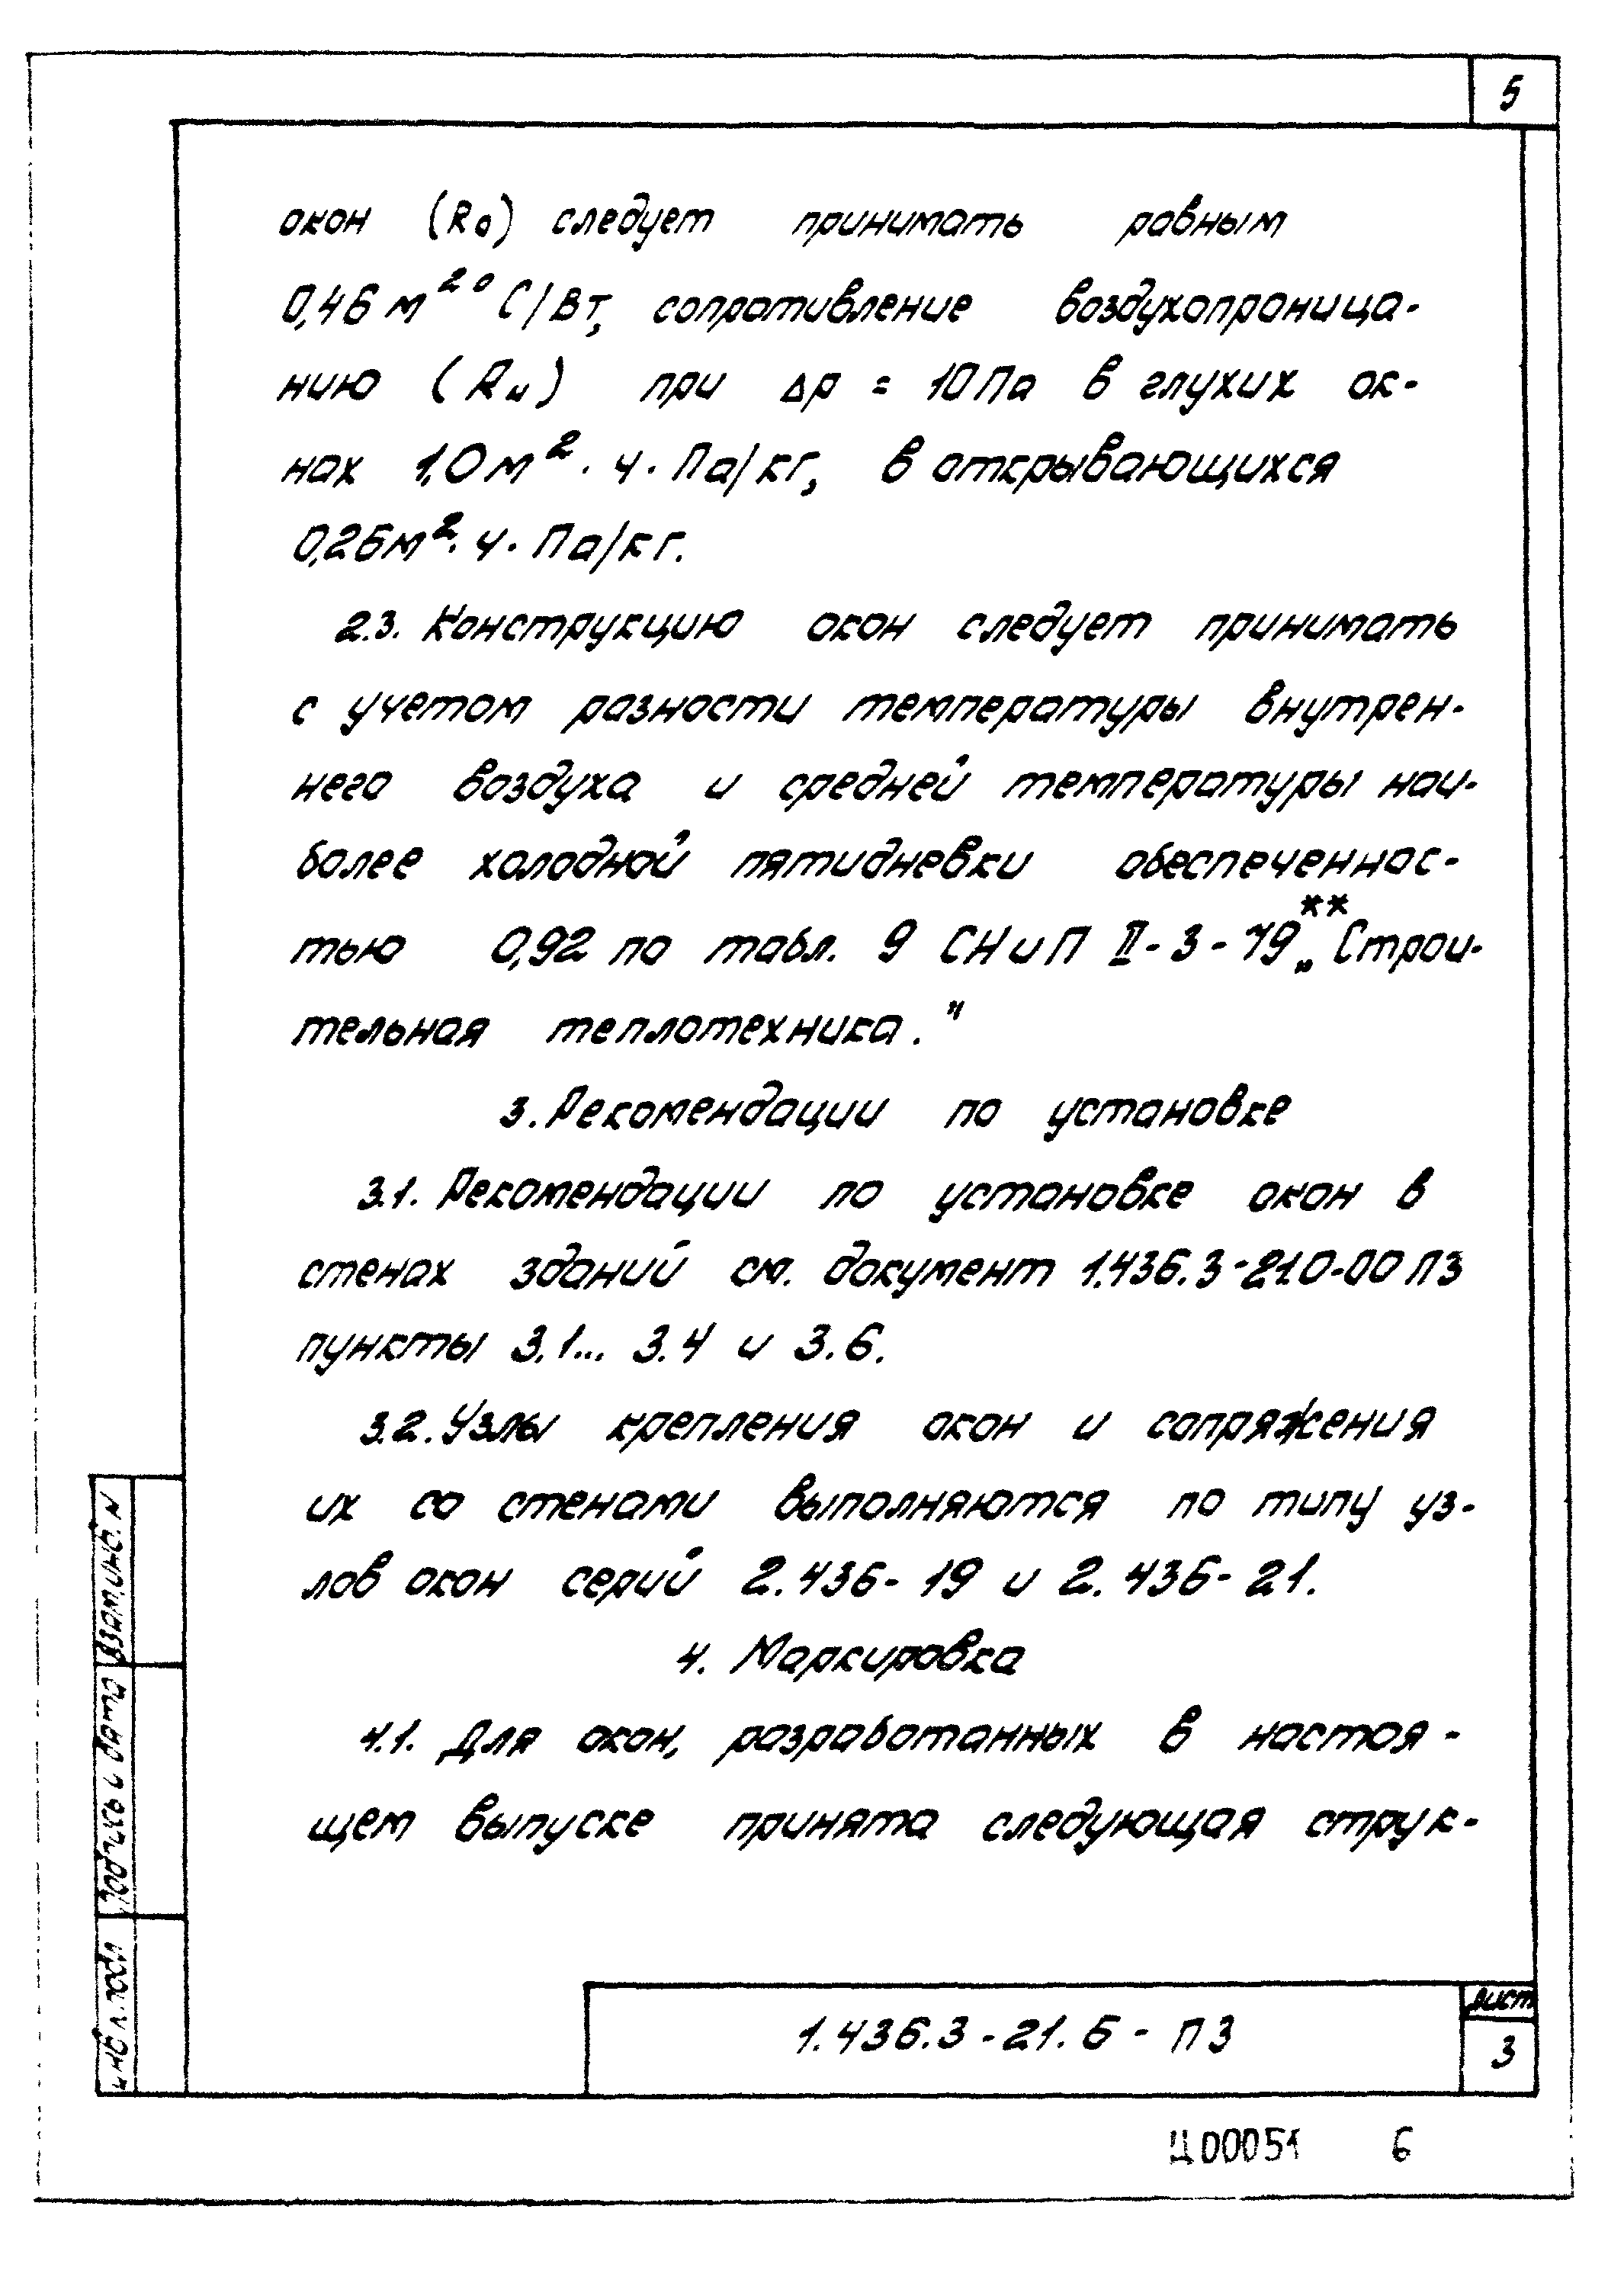 5
окон (Rо) следует принимать равным
0,46 м² °С/Вт, сопротивление воздухопроница-
нию (Rи) при Δр = 10 Па в глухих ок-
нах 1,0 м² · ч · Па/кг, в открывающихся
0,26 м² · ч · Па/кг.
2.3. Конструкцию окон следует принимать
с учетом разности температуры внутрен-
него воздуха и средней температуры наи-
более холодной пятидневки обеспеченнос-
тью 0,92 по табл. 9 СНиП II-3-79** „Строи-
тельная теплотехника."
3. Рекомендации по установке
3.1. Рекомендации по установке окон в
стенах зданий см. документ 1.436.3-21.0-00 ПЗ
пункты 3.1... 3.4 и 3.6.
3.2. Узлы крепления окон и сопряжения
их со стенами выполняются по типу уз-
лов окон серий 2.436-19 и 2.436-21.
4. Маркировка
4.1. Для окон, разработанных в настоя-
щем выпуске принята следующая струк-
Взам.инв. N
Подпись и дата
Инв N подл
1.436.3-21.6-ПЗ
Лист
3
Ц00051 6